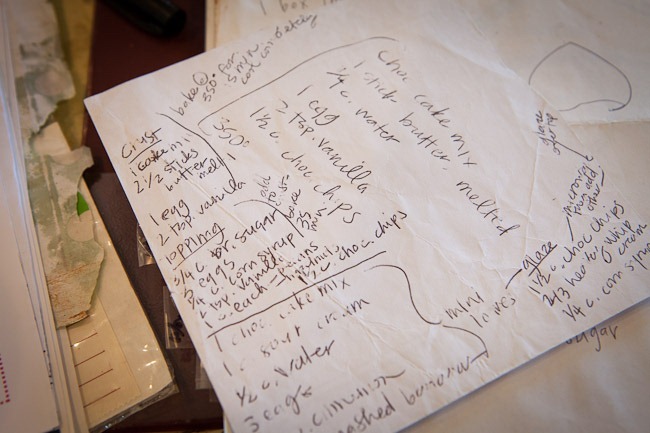 bake @
350° for
5 min
cool completely
Crust
1 cake mix
2 1/2 sticks
butter
melt
1 egg
2 Tsp. vanilla
topping
3/4 c. br. sugar
3 eggs
3/4 c. corn syrup
2 Tsp. vanilla
1 c. each
1 1/2 c. choc. chips
bake
25
min
350°
choc cake mix
1 stick butter, melted
1/4 c. water
1 egg
1 Tsp. vanilla
1 1/2 c. choc. chips
1 choc. cake mix
1 c. sour cream
1/2 c. water
3 eggs
cinnamon
mashed bananas
mini
loaves
glaze
1 1/2 c. choc chips
2/3 heated whip
cream
1/4 c. corn syrup
sugar
microwave
glaze